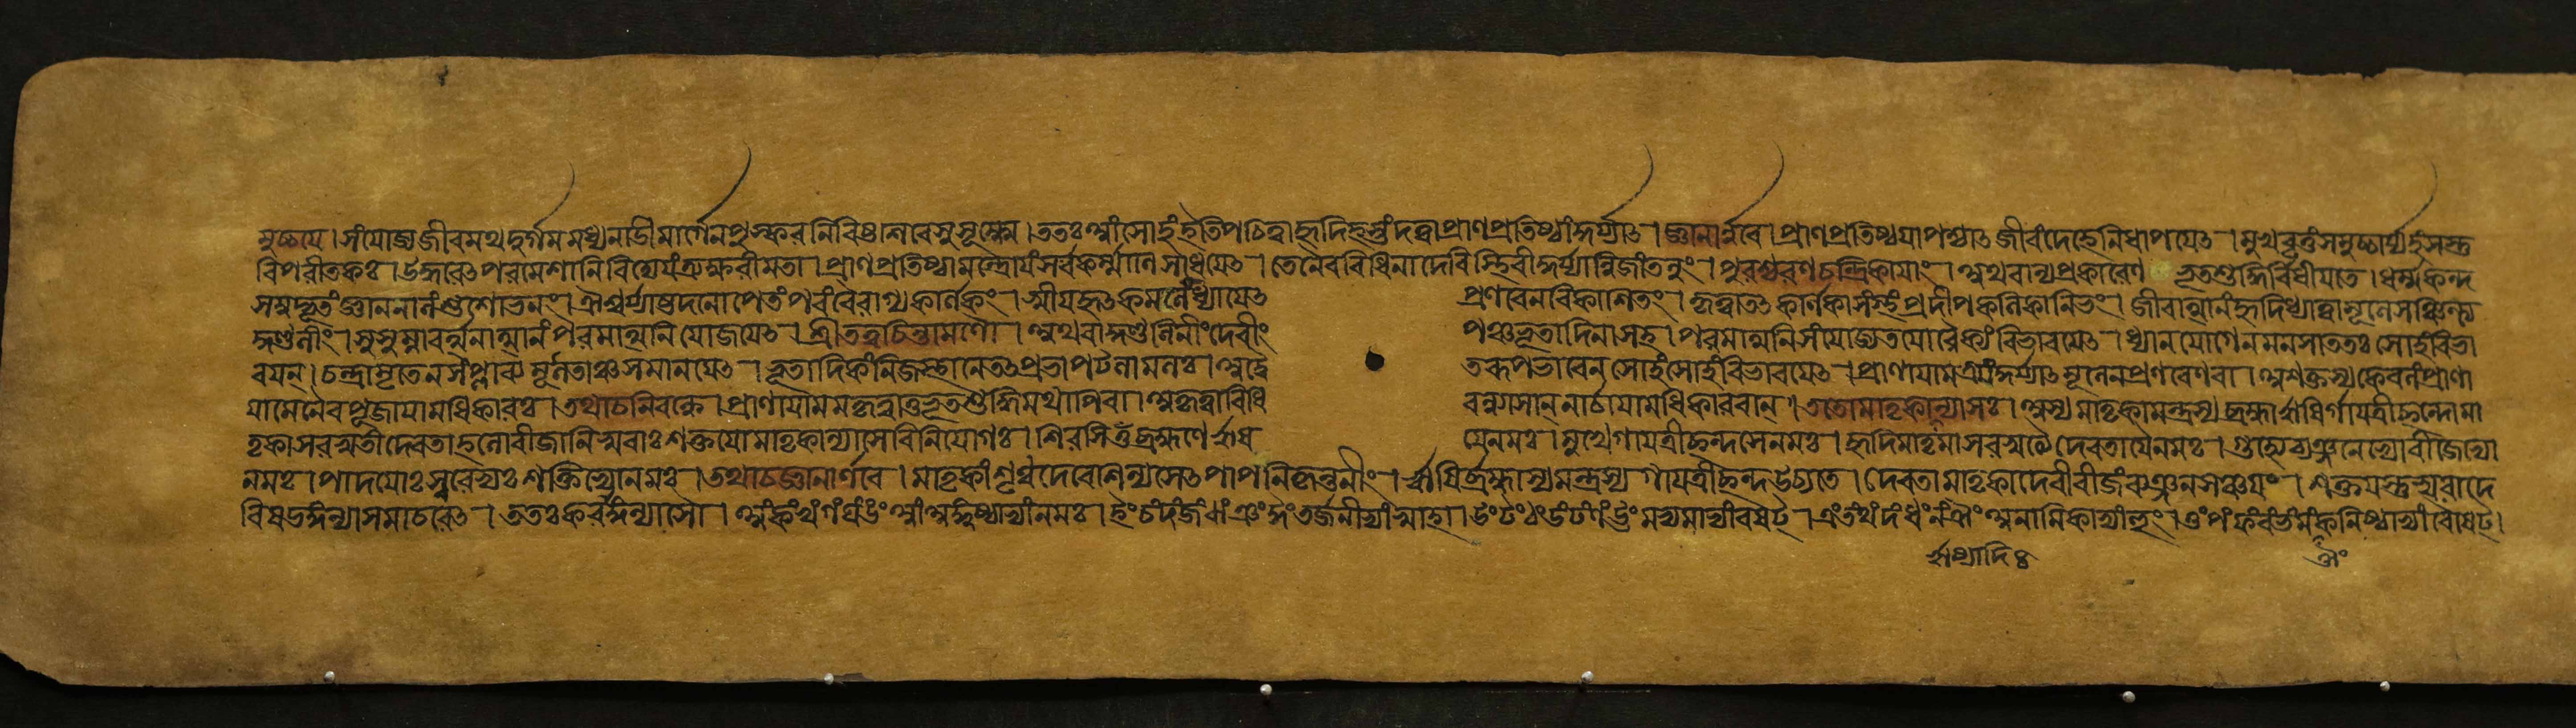 মুচ্চার্য্য । সংযোজ্য জীবমথ দুর্গমমধ্যনাডীমার্গেন পুষ্করনিবিষ্টশিবে সুসূক্ষ্মে । ততঃ সোহং ইতি পঠিত্বা হৃদি হস্তং দত্বা প্রাণপ্রতিষ্ঠাং কুর্য্যাৎ । জ্ঞানার্ণবে । প্রাণপ্রতিষ্ঠয়া পশ্চাৎ জীবং দেহে নিধাপয়েৎ ।
বিপরীতকঃ । উদ্ধরেৎ পরমেশানি বিদ্যেয়ং ত্র্যক্ষরী মতা । প্রাণপ্রতিষ্ঠামন্ত্রোয়ং সর্বকর্ম্মাণি সাধয়েৎ । তেনৈব বিধিনা দেবি স্থিরীকুর্য্যান্নিজাং তনুং । পুরশ্চরণচন্দ্রিকায়াং । অথবান্যপ্রকারেণ ভূতশুদ্ধির্বিধীয়তে । ধর্ম্মকন্দ
সমুদ্ভূতং জ্ঞাননালং সুশোভনং । ঐশ্বর্য্যাষ্টদলোপেতং পরং বৈরাগ্যকর্ণিকং । স্বীয়হৃৎকমলং ধ্যায়েৎ প্রণবেন বিকাশিতং । কৃত্বা তৎকর্ণিকাসংস্থং প্রদীপকলিকানিভং । জীবাত্মানং হৃদি ধ্যাত্বা মূলে সঞ্চিন্ত্য
কুণ্ডলীং । সুষুম্নাবর্ত্মনাত্মানং পরমাত্মনি যোজয়েৎ । শ্রীতত্বচিন্তামণৌ । অথবা কুণ্ডলিনীং দেবীং পঞ্চভূতাদিনা সহ । পরমাত্মনি সংযোজ্য তয়োরৈক্যং বিভাবয়েৎ । ধ্যানযোগেন মনসা ততঃ সোহং বিভা
বয়ন্ । চন্দ্রামৃতেন সংপ্লাব্য মূর্তিতাঞ্চ সমানয়েৎ । ভূতাদিকং নিজস্থানে তৎপ্রভাপটলামলঃ । তদ্রূপভাবেন সোহং সোহং বিভাবয়েৎ । প্রাণায়ামত্রয়ং কুর্য্যাৎ মূলেন প্রণবেণ বা । অশক্তস্য প্রাণা
যামেনৈব পূজায়ামধিকারঃ । তথাচ । প্রাণায়ামমকৃত্বা তু ভূতশুদ্ধিমথাপি বা । অকৃত্বা বিধি বন্ন্যাসান্ নার্চায়ামধিকারবান্ । ততো মাতৃকান্যাসঃ । অস্য মাতৃকামন্ত্রস্য ব্রহ্মাঋষির্গায়ত্রীছন্দো মা
তৃকাসরস্বতী দেবতা হলো বীজানি স্বরাঃ শক্তয়ো মাতৃকান্যাসে বিনিয়োগঃ । শিরসি ওঁ ব্রহ্মণে ঋষ য়ে নমঃ । মুখে গায়ত্রীছন্দসে নমঃ । হৃদি মাতৃকাসরস্বত্যৈ দেবতায়ৈ নমঃ । গুহ্যে ব্যঞ্জনেভ্যো বীজেভ্যো
নমঃ । পাদয়োঃ স্বরেভ্যঃ শক্তিভ্যো নমঃ । তথাচ জ্ঞানার্ণবে । মাতৃকাং শৃণু দেবেশি ন্যসেৎ পাপনিকৃন্তনীং । ঋষির্ব্রহ্মাস্য মন্ত্রস্য গায়ত্রীছন্দ উচ্যতে । দেবতা মাতৃকাদেবী বীজং ব্যঞ্জনসঞ্চয়ং । শক্তয়স্তু স্বরা দে
বি ষডঙ্গন্যাসমাচরেৎ । ততঃ করাঙ্গন্যাসৌ । অং কং খং গং ঘং ঙং আং অঙ্গুষ্ঠাভ্যাং নমঃ । ইং চং ছং জং ঝং ঞং ঈং তর্জনীভ্যাং স্বাহা । উং টং ঠং ডং ঢং ণং ঊং মধ্যমাভ্যাং বষট্ । এং তং থং দং ধং নং ঐং অনামিকাভ্যাং হুং । ওং পং ফং বং ভং মং কনিষ্ঠাভ্যাং বৌষট্ ।
ঔং